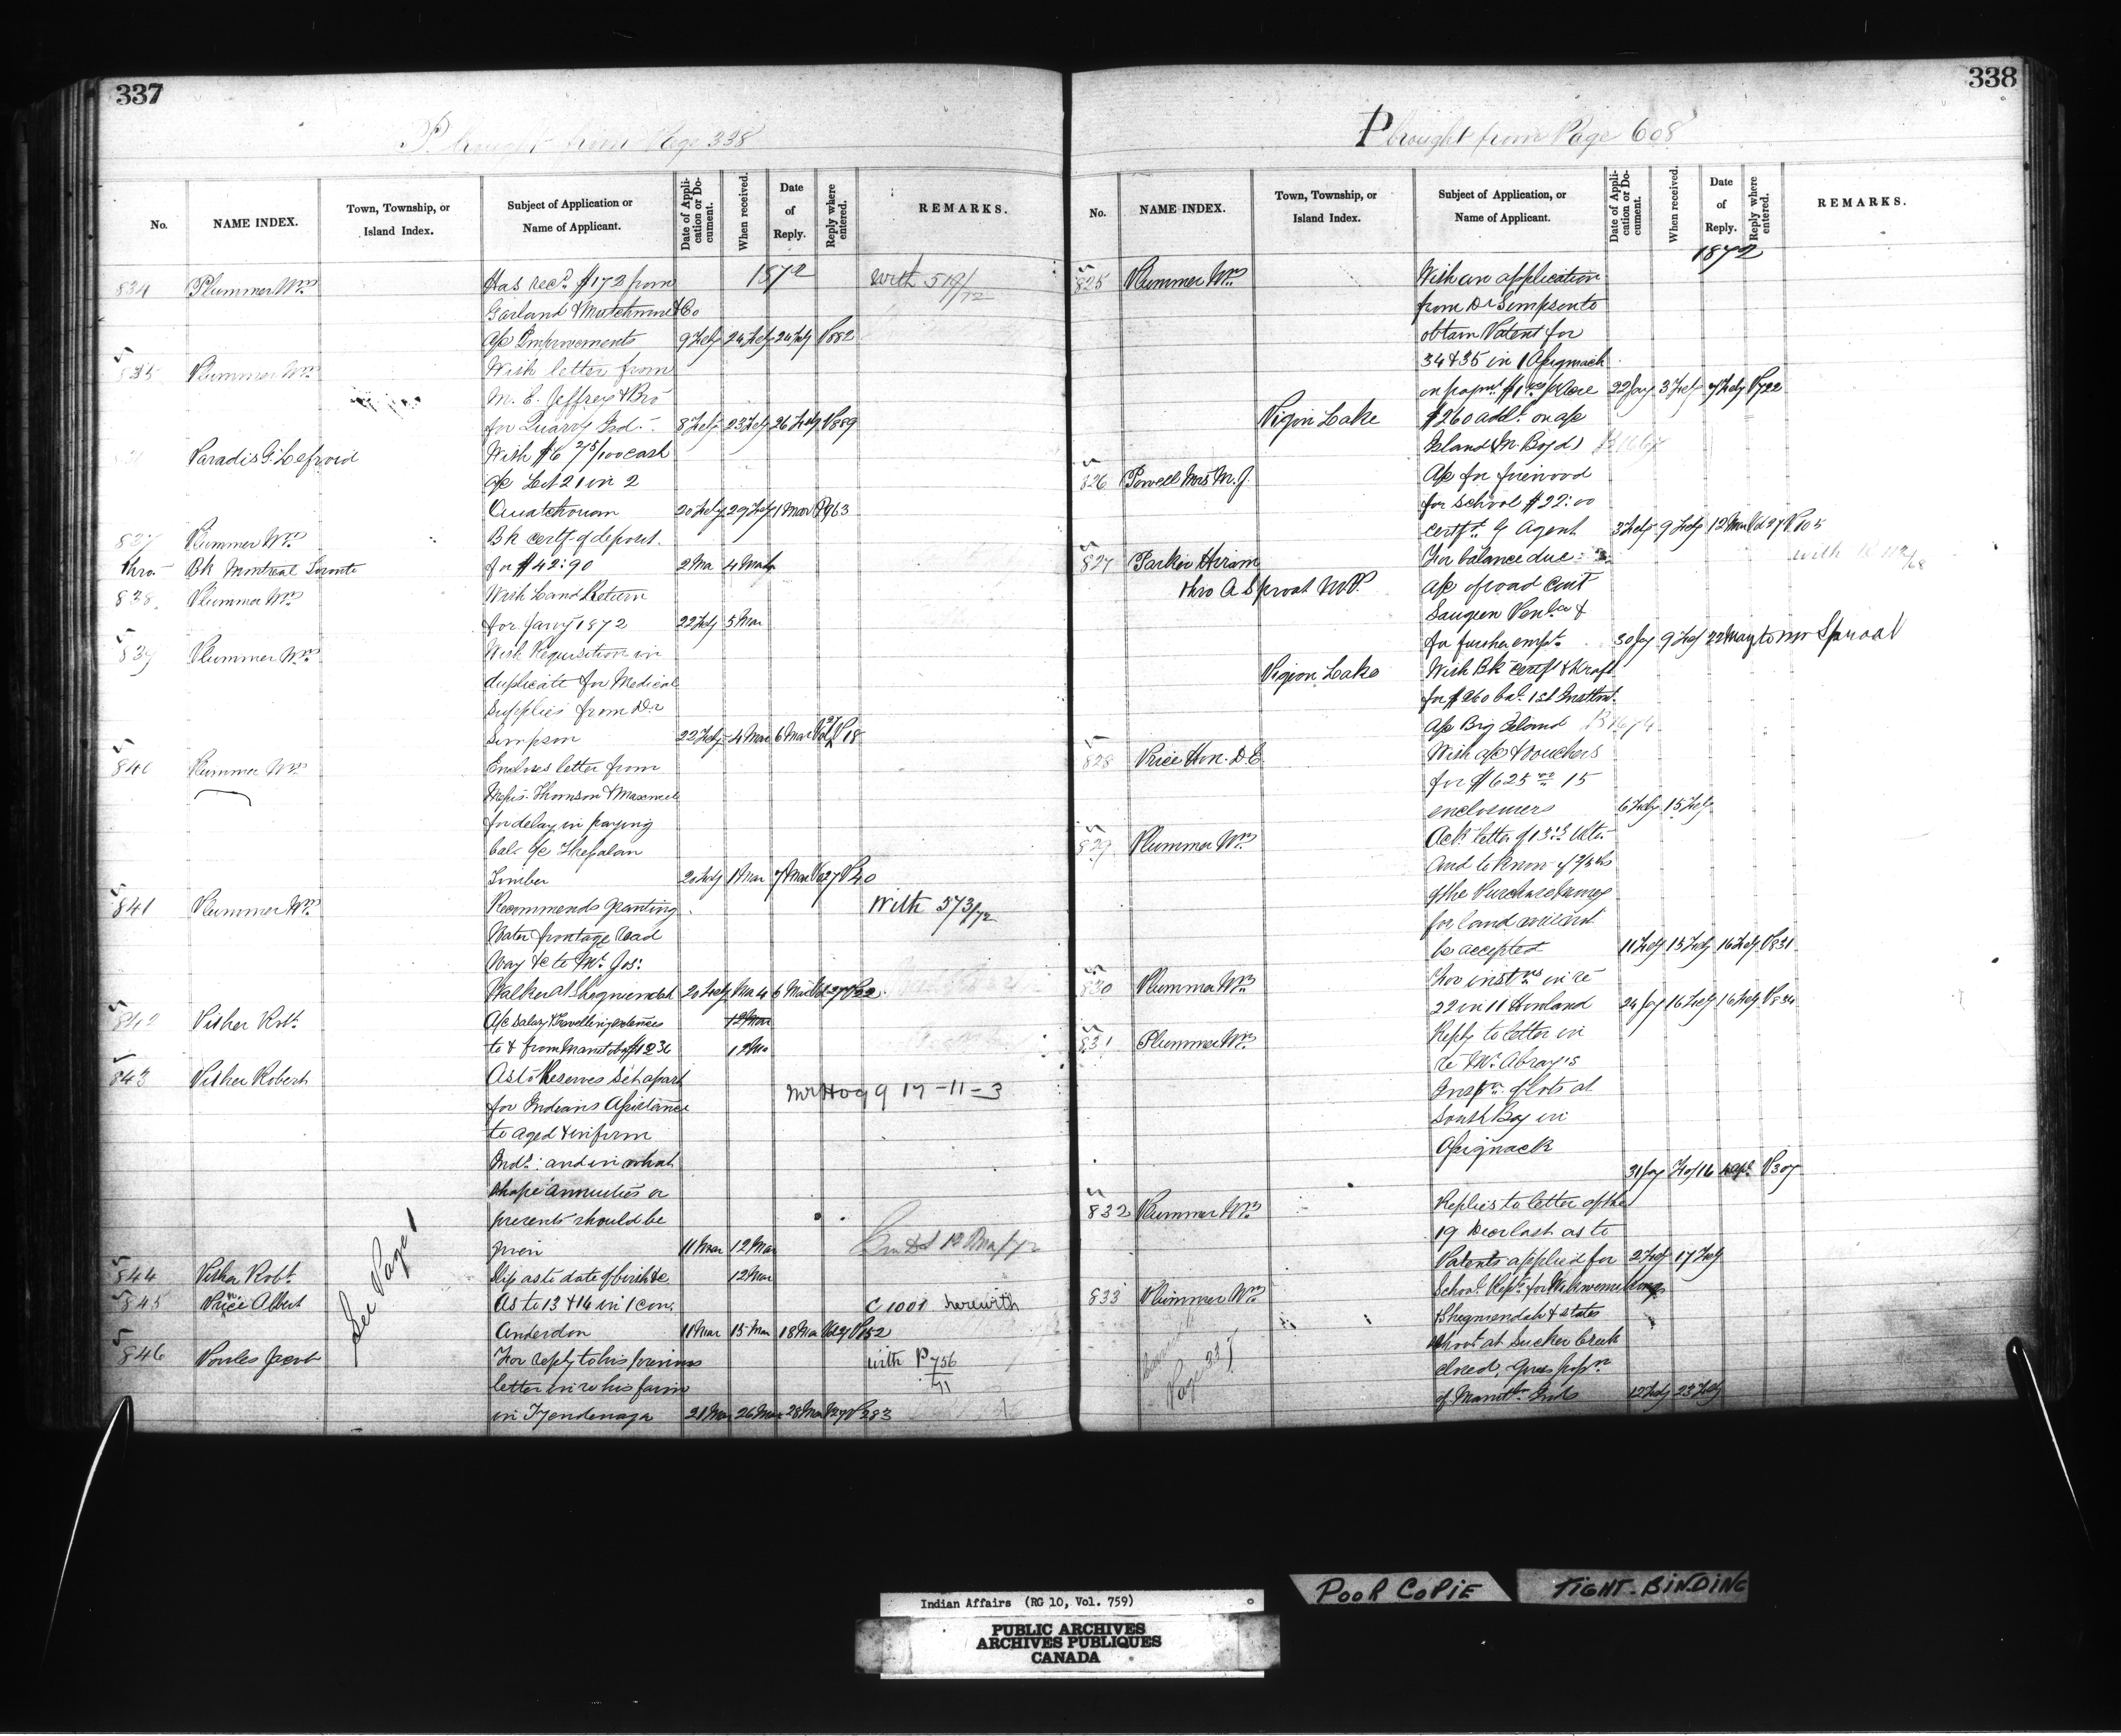 337
P brought from Page 338
No.
NAME INDEX.
Town, Township, or Island Index.
Subject of Application or Name of Applicant.
Date of Application or Document.
When received.
Date of Reply.
Reply where entered.
REMARKS.
1872
834 Plummer Wm Has recd $172 from with 519/72
Garland & Mutchmore & Co
a/c Improvements 9 Feby 24 Feby 24 Feby P882
835 Plummer Wm With letter from
M. E. Jeffrey & Bro
for Quarry Isd. 8 Feby 23 Feby 26 Feby P889
Paradis G. Lefroid With $6 75/100 cash
a/c Lot 21 in 2
Ouiatchouan 20 Feby 29 Feby 1 Mar P963
837 Plummer Wm Bk certf of deposit
thro Bk Montreal Toronto for $42:90 2 Ma 4 Mar
838 Plummer Wm With Land Return
for Jany 1872 22 Feby 5 Mar
839 Plummer Wm With Requisition in
duplicate for Medical
Supplies from Dr
Simpson 22 Feby 4 Mar 6 Mar Vol 27 P18
840 Plummer Wm Encloses letter from
Messrs. Thomson & Maxwell
for delay in paying
bal. a/c Thessalon
Timber 20 Feby 1 Mar 7 Mar Vo 27 P40
841 Plummer Wm Recommends granting With 573/72
Water frontage Road
Way &c to Mr. Jos:
Walker at Sheguiendah 20 Feby Ma 4 6 Mar Vol 27 P22
842 Pither Robt. A/c Salary & travelling expenses 12 Mar
to & from Manitoba $1236 12 Ma
843 Pither Robert As to Reserves set apart
for Indians Assistance Mr Hogg 17-11-3
to aged & infirm
Inds: and in what
shape annuities or
presents should be
given 11 Mar 12 Mar
See Page 1
844 Pither Robt. Slip as to date of birth &c 12 Mar
845 Price Albert As to 13 & 14 in 1 con. C 1001 herewith
Anderdon 11 Mar 15 Mar 18 Mar Vol 27 P152
846 Powles Jacob For reply to his previous with P 756/71
letter in re his farm
in Tyendenaga 21 Mar 26 Mar 28 Mar V27 P283
338
P brought from Page 608
No.
NAME INDEX.
Town, Township, or Island Index.
Subject of Application, or Name of Applicant.
Date of Application or Document.
When received.
Date of Reply.
Reply where entered.
REMARKS.
1872
825 Plummer Wm With an application
from Dr Simpson to
obtain Patent for
34 & 35 in 1 Assiginack
on paymt $1 00 p Acre 22 Jay 3 Feby 7 Feby P722
Pigion Lake $260 addl. on a/c
Island (M. Boyd)
826 Powell Mrs M. J. A/c for firewood
for School $22:00
certft. by Agent 3 Feby 9 Feby 12 Mar Vol 27 P105
827 Parker Hiram For balance due
thro A Sproat M.P. a/c of road cont
Saugeen Penla &
for further empt. 30 Jay 9 Feby 22 May to Mr Sproat
Pigion Lake With Bk certft & draft
for $260 bal. 1st Instlmt.
a/c Big Island
828 Price Hon. D. E With a/c & vouchers
for $625 15
enclosures 6 Feby 15 Feby
829 Plummer Wm Ack. letter of 13th Ulto.
and to know if
of the Purchase money
for land
be accepted 11 Feby 15 Feby 16 Feby P831
830 Plummer Wm For instns in re
22 in 11 Howland 24 Jay 16 Feby 16 Feby P834
831 Plummer Wm Reply to letter in
re Mr. Abray's
Inspn. of lots at
South Bay in
Assiginack
31 Jay Feb 16 P307
832 Plummer Wm Replies to letter of the
19 Decr last as to
Patents applied for 2 Feby 17 Feby
833 Plummer Wm School Repts. for Wikwemikong
Sheguiendah & states
school at Sucker Creek
closed, gives popn
of Manitln Inds 12 Feby 23 Feby
Page 337
Indian Affairs (RG 10, Vol. 759)
PUBLIC ARCHIVES
ARCHIVES PUBLIQUES
CANADA
POOR COPIE
TIGHT BINDING